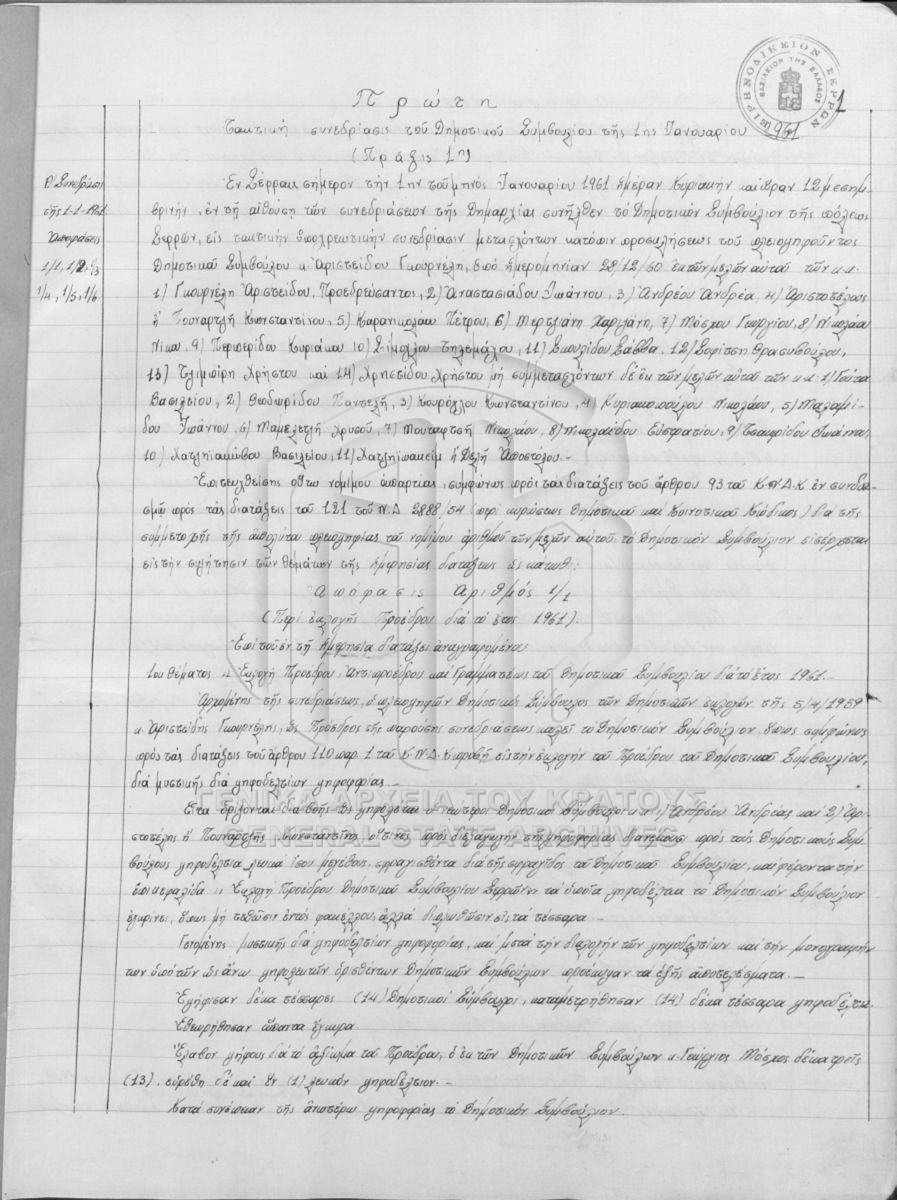 ΕΙΡΗΝΟΔΙΚΕΙΟΝ ΣΕΡΡΩΝ
ΒΑΣΙΛΕΙΟΝ ΤΗΣ ΕΛΛΑΔΟΣ
1961
1
Πρώτη
Τακτική συνεδρίασις τοῦ Δημοτικοῦ Συμβουλίου τῆς 1ης Ἰανουαρίου
(Πρᾶξις 1η)
Α' Συνεδρίασις
τῆς 1-1-1961
Ἀποφάσεις
1/1, 1/2, 1/3
1/4, 1/5, 1/6.
Ἐν Σέρραις σήμερον τήν 1ην τοῦ μηνός Ἰανουαρίου 1961 ἡμέραν Κυριακήν καί ὥραν 12 μεσημ-
βρινήν, ἐν τῇ αἰθούσῃ τῶν συνεδριάσεων τῆς Δημαρχίας συνῆλθεν τό Δημοτικόν Συμβούλιον τῆς πόλεως
Σερρῶν, εἰς τακτικήν ὑποχρεωτικήν συνεδρίασιν μετασχόντων κατόπιν προσκλήσεως τοῦ πλειοψηφοῦντος
Δημοτικοῦ Συμβούλου κ. Ἀριστείδου Γκουρνέλη, ὑπό ἡμερομηνίαν 28/12/60 ἐκ τῶν μελῶν αὐτοῦ τῶν κ.κ.
1) Γκουρνέλη Ἀριστείδου, Προεδρεύσαντος, 2) Ἀναστασιάδου Ἰωάννου, 3) Ἀνδρέου Ἀνδρέα, 4) Ἀριστοτέλους
ἤ Πουναρτζῆ Κωνσταντίνου, 5) Καρανικολάου Πέτρου, 6) Μερτζιάνη Χαριλάη, 7) Μόσχου Γεωργίου, 8) Νικολάου
Νίκου, 9) Περφερίδου Κυριάκου 10) Σίμογλου Τηλεμάχου, 11) Σκουλίδου Σάββα, 12) Σοφίτση Θρασυβούλου,
13) Τλιμπίρη Χρήστου καί 14) Χρηστίδου Χρήστου μή συμμετασχόντων δέ ἐκ τῶν μελῶν αὐτοῦ τῶν κ.κ. 1) Γούτα
Βασιλείου, 2) Θεοδωρίδου Παντελῆ, 3) Κουρόγλου Κωνσταντίνου, 4) Κυριακοπούλου Νικολάου, 5) Μαλαμί-
δου Ἰωάννου, 6) Μαμελετζῆ Χρυσοῦ, 7) Μουταφτσῆ Νικολάου, 8) Νικολαΐδου Εὐστρατίου, 9) Τσακιρίδου Ἰωάννου,
10) Χατζηιακώβου Βασιλείου, 11) Χατζηιωακείμ ἤ Δελῆ Ἀποστόλου.-
Ἐπιτευχθείσης οὕτω νομίμου ἀπαρτίας, συμφώνως πρός τάς διατάξεις τοῦ ἄρθρου 93 τοῦ Κ.Ν.Δ.Κ ἐν συνδυα-
σμῷ πρός τάς διατάξεις τοῦ 121 τοῦ Ν.Δ 2888/54 (περί κυρώσεως Δημοτικοῦ καί Κοινοτικοῦ Κώδικος) διά τῆς
συμμετοχῆς τῆς ἀπολύτου πλειοψηφίας τοῦ νομίμου ἀριθμοῦ τῶν μελῶν αὐτοῦ, τό Δημοτικόν Συμβούλιον εἰσέρχεται
εἰς τήν συζήτησιν τῶν θεμάτων τῆς ἡμερησίας διατάξεως ὡς κάτωθι:
Ἀπόφασις Ἀριθμός 1/1
(Περί ἐκλογῆς Προέδρου διά τό ἔτος 1961).
Ἐπί τοῦ ἐν τῇ ἡμερησίᾳ διατάξει ἀναγραφομένου
1ου θέματος "Ἐκλογή Προέδρου, Ἀντιπροέδρου καί Γραμματέως τοῦ Δημοτικοῦ Συμβουλίου διά τό ἔτος 1961.-
Ἀρχομένης τῆς συνεδριάσεως, ὁ πλειοψηφῶν Δημοτικός Σύμβουλος τῶν Δημοτικῶν ἐκλογῶν τῆς 5/4/1959
κ. Ἀριστείδης Γκουρνέλης, ὡς Πρόεδρος τῆς παρούσης συνεδριάσεως καλεῖ τό Δημοτικόν Συμβούλιον, ὅπως συμφώνως
πρός τάς διατάξεις τοῦ ἄρθρου 110 παρ. 1 τοῦ Κ.Ν.Δ.Κ προβῇ εἰς τήν ἐκλογήν τοῦ Προέδρου τοῦ Δημοτικοῦ Συμβουλίου,
διά μυστικῆς διά ψηφοδελτίων ψηφοφορίας.-
ΓΕΝΙΚΑ ΑΡΧΕΙΑ ΤΟΥ ΚΡΑΤΟΥΣ
GENERAL STATE ARCHIVES
Εἶτα ὁρίζονται διά βοῆς ὡς ψηφολέκται οἱ νεώτεροι Δημοτικοί Σύμβουλοι κ.κ. 1) Ἀνδρέου Ἀνδρέας καί 2) Ἀρι-
στοτέλης ἤ Πουναρτζῆς Κωνσταντῖνος οἵτινες πρός διεξαγωγήν τῆς ψηφοφορίας διανέμουσι πρός τούς Δημοτικούς Συμ-
βούλους ψηφοδέλτια λευκά ἴσου μεγέθους, σφραγισθέντα διά τῆς σφραγῖδος τοῦ Δημοτικοῦ Συμβουλίου, καί φέροντα τήν
ἐπικεφαλίδα "Ἐκλογή Προέδρου Δημοτικοῦ Συμβουλίου Σερρῶν" τά ὁποῖα ψηφοδέλτια τό Δημοτικόν Συμβούλιον
ἐγκρίνει, ὅπως μή τεθῶσιν ἐντός φακέλλου, ἀλλά διπλωθῶσιν εἰς τά τέσσαρα.-
Γενομένης μυστικῆς διά ψηφοδελτίων ψηφοφορίας, καί μετά τήν διαλογήν τῶν ψηφοδελτίων καί τήν μονογραφήν
των ὑπό τῶν ὡς ἄνω ψηφολεκτῶν ὁρισθέντων Δημοτικῶν Συμβούλων προέκυψαν τά ἑξῆς ἀποτελέσματα.-
Ἐψήφισαν δέκα τέσσαρες (14) Δημοτικοί Σύμβουλοι, καταμετρήθησαν (14) δέκα τέσσαρα ψηφοδέλτια.
Ἐθεωρήθησαν ἅπαντα ἔγκυρα.
Ἔλαβον ψήφους διά τό ἀξίωμα τοῦ Προέδρου, ὁ ἐκ τῶν Δημοτικῶν Συμβούλων κ. Γεώργιος Μόσχος δέκα τρεῖς
(13), εὑρέθη δέ καί ἕν (1) λευκόν ψηφοδέλτιον.-
Κατά συνέπειαν τῆς ἀνωτέρω ψηφοφορίας τό Δημοτικόν Συμβούλιον.